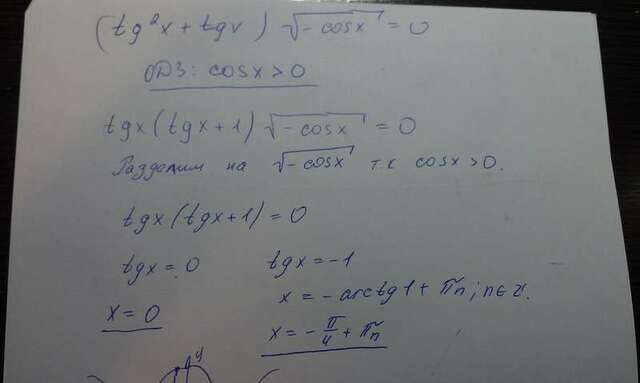 (tg²x + tgx) √-cosx = 0
ОДЗ: cosx > 0
tgx (tgx + 1) √-cosx = 0
Разделим на √-cosx т.к cosx > 0.
tgx (tgx + 1) = 0
tgx = 0 tgx = -1
x = 0 x = - arctg1 + πn; n ∈ z.
x = - π/4 + πn
y